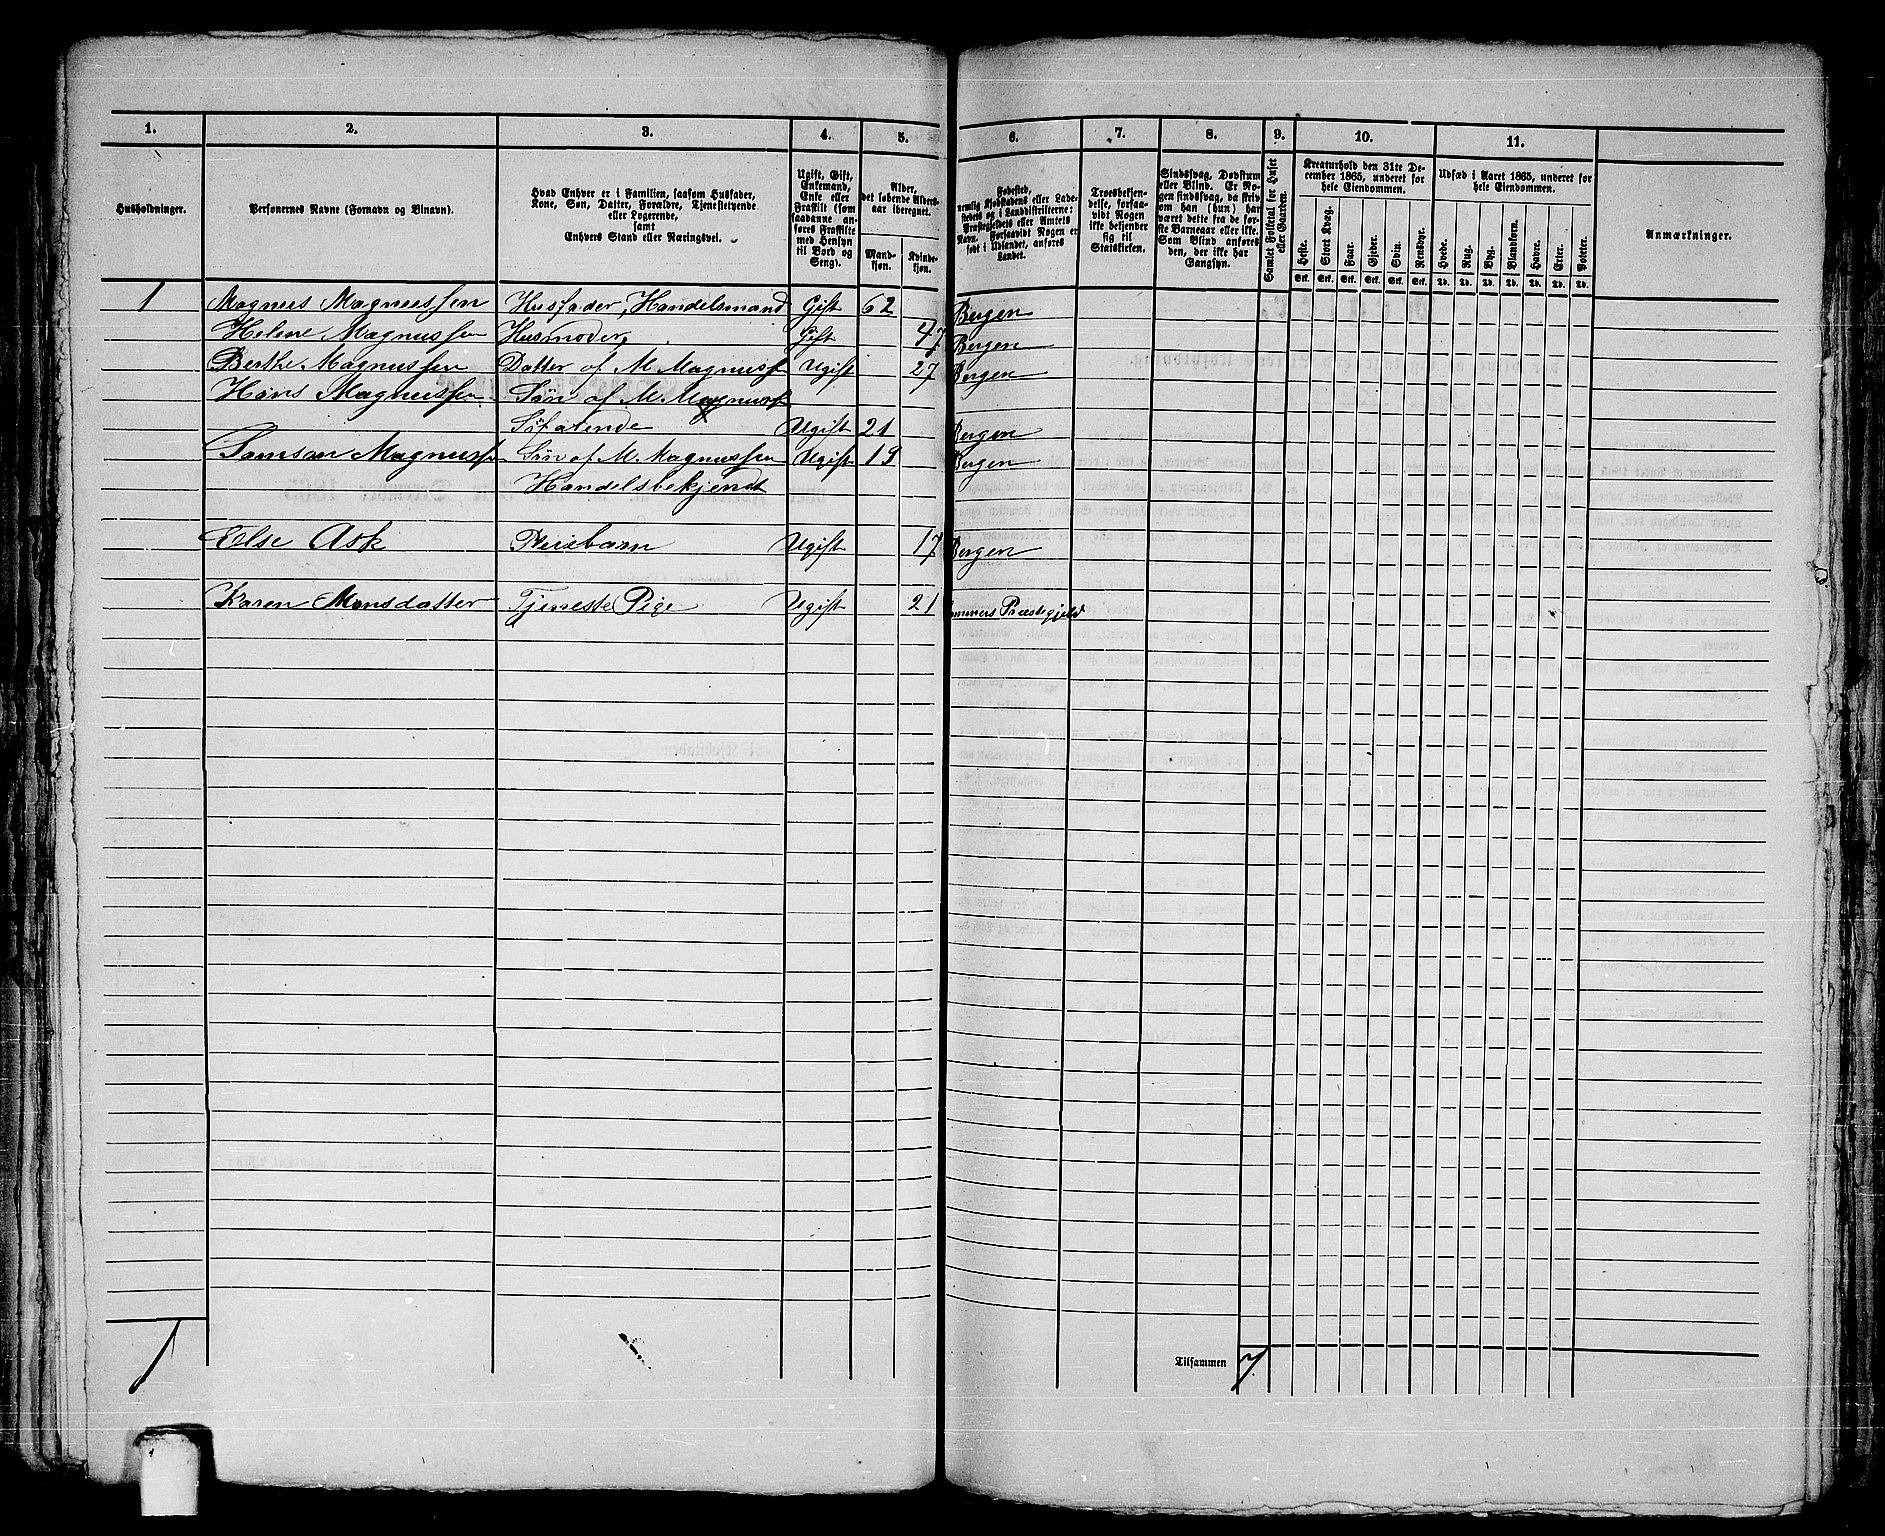 1. 2. 3. 4. 5. 6. 7. 8. 9. 10. 11.
Husholdninger.
Personernes Navne (Fornavn og Binavn).
Hvad Enhver er i Familien, saasom Husfader,
Kone, Søn, Datter, Forældre, Tjenestetyende
eller Logerende,
samt
Enhvers Stand eller Næringsvei.
Ugift, Gift,
Enkemand,
Enke eller
Fraskilt (som
saadanne an-
føres Fraskilte
med Hensyn
til Bord og
Seng).
Alder,
det løbende Alders-
aar iberegnet.
Mand-
kjøn.
Kvinde-
kjøn.
Fødested,
nemlig Kjøbstadens eller Lade-
stedets og i Landdistrikterne:
Præstegjeldets eller Amtets
Navn. Forsaavidt Nogen er
født i Udlandet, anføres
Landet.
Troesbekjen-
delse, forsaa-
vidt Nogen
ikke bekjender
sig til
Statskirken.
Sindssvag, Døvstum
eller Blind. Er No-
gen sindssvag, da skriv
om han (hun) har
været dette fra de før-
ste Barneaar eller ikke.
Som Blind anføres
den, der ikke har
Gangsyn.
Samlet Folketal for Huset
eller Gaarden.
Kreaturhold den 31te De-
cember 1865, underet for
hele Eiendommen.
Heste. Stort Kvæg. Faar. Gjeder. Svin. Rensdyr.
Stk. Stk. Stk. Stk. Stk. Stk.
Udsæd i Aaret 1865, underet for
hele Eiendommen.
Hvede. Rug. Byg. Blandkorn. Havre. Erter. Poteter.
Td. Td. Td. Td. Td. Td. Td.
Anmærkninger.
1 Magnus Magnussen Husfader, Handelsmand Gift 62 Bergen
Helene Magnussen Husmoder, Gift 47 Bergen
Berthe Magnussen Datter af M. Magnuss Ugift 27 Bergen
Hans Magnussen Søn af M. Magnuss
Søfarende Ugift 21 Bergen
Samson Magnuss Søn af M. Magnussen Ugift 19 Bergen
Handelsbekjendt
Else Ask Pleiebarn Ugift 17 Bergen
Karen Monsdatter Tjeneste Pige Ugift 21 Præstegjeld
1
Tilsammen 7